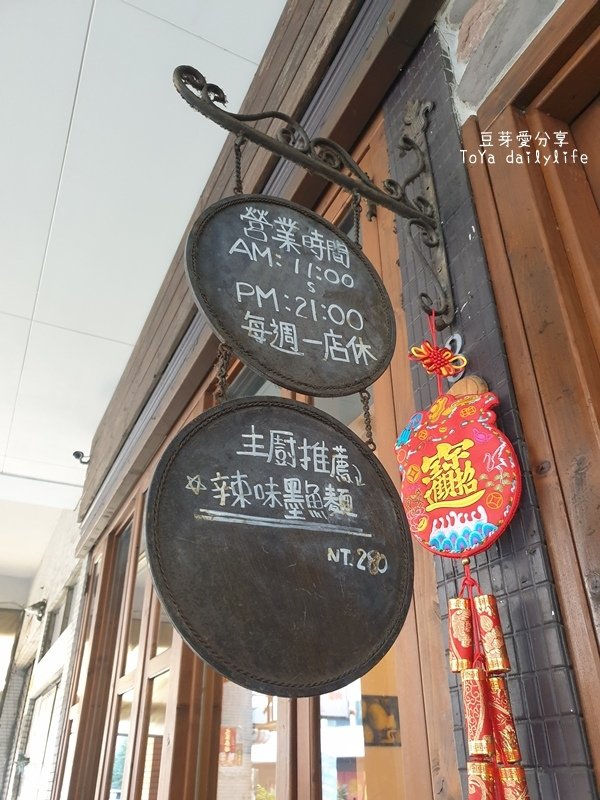 豆芽愛分享
ToYa dailylife
營業時間
AM:11:00
s
PM:21:00
每週一店休
主廚推薦
☆辣味墨魚麵
NT.280
招財進寶